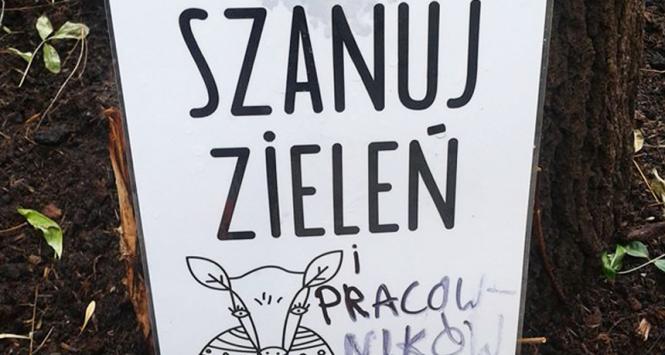 SZANUJ
ZIELEŃ
i
PRACOW-
NIKÓW